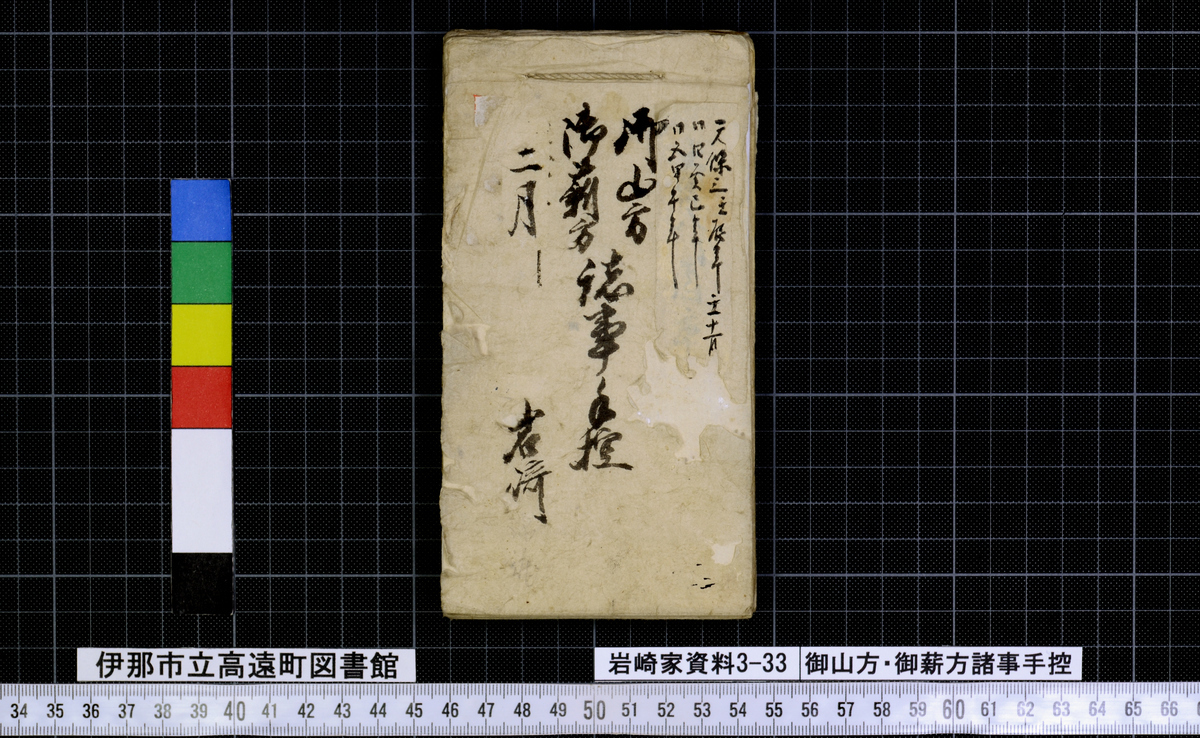 一天保三壬辰年 十一月
同四癸巳年
同五甲午年
御山方
御薪方
諸事手控
二月
岩崎
伊那市立高遠町図書館
岩崎家資料3-33
御山方・御薪方諸事手控
34 35 36 37 38 39 40 41 42 43 44 45 46 47 48 49 50 51 52 53 54 55 56 57 58 59 60 61 62 63 64 65 66